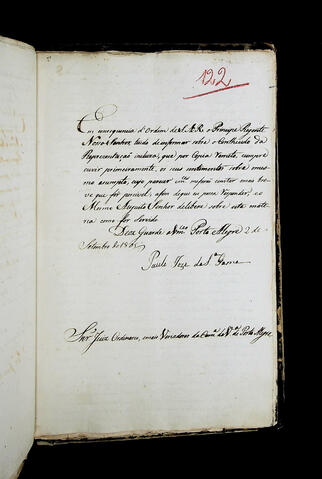 122
Em consequencia d'Ordem de S. A. R. o Principe Regente
Nosso Senhor tendo de informar sobre o Contheudo da
Reprezentação incluza, que por Copia remeto, cumpre
ouvir primeiramente, os seus sentimentos sobre o mes-
mo assumpto, cujo parecer vm.ces
que for possivel, afim de que eu possa responder, e o
Mesmo Augusto Senhor delibere sobre esta mate-
ria como for servido
Deos Guarde a Vm.ces Porto Alegre 2 de
Setembro de
Paulo Joze da S.a Gama
Snr.s Juiz Ordinario, e mais Vereadores da Cam.a da V.a de Porto Alegre